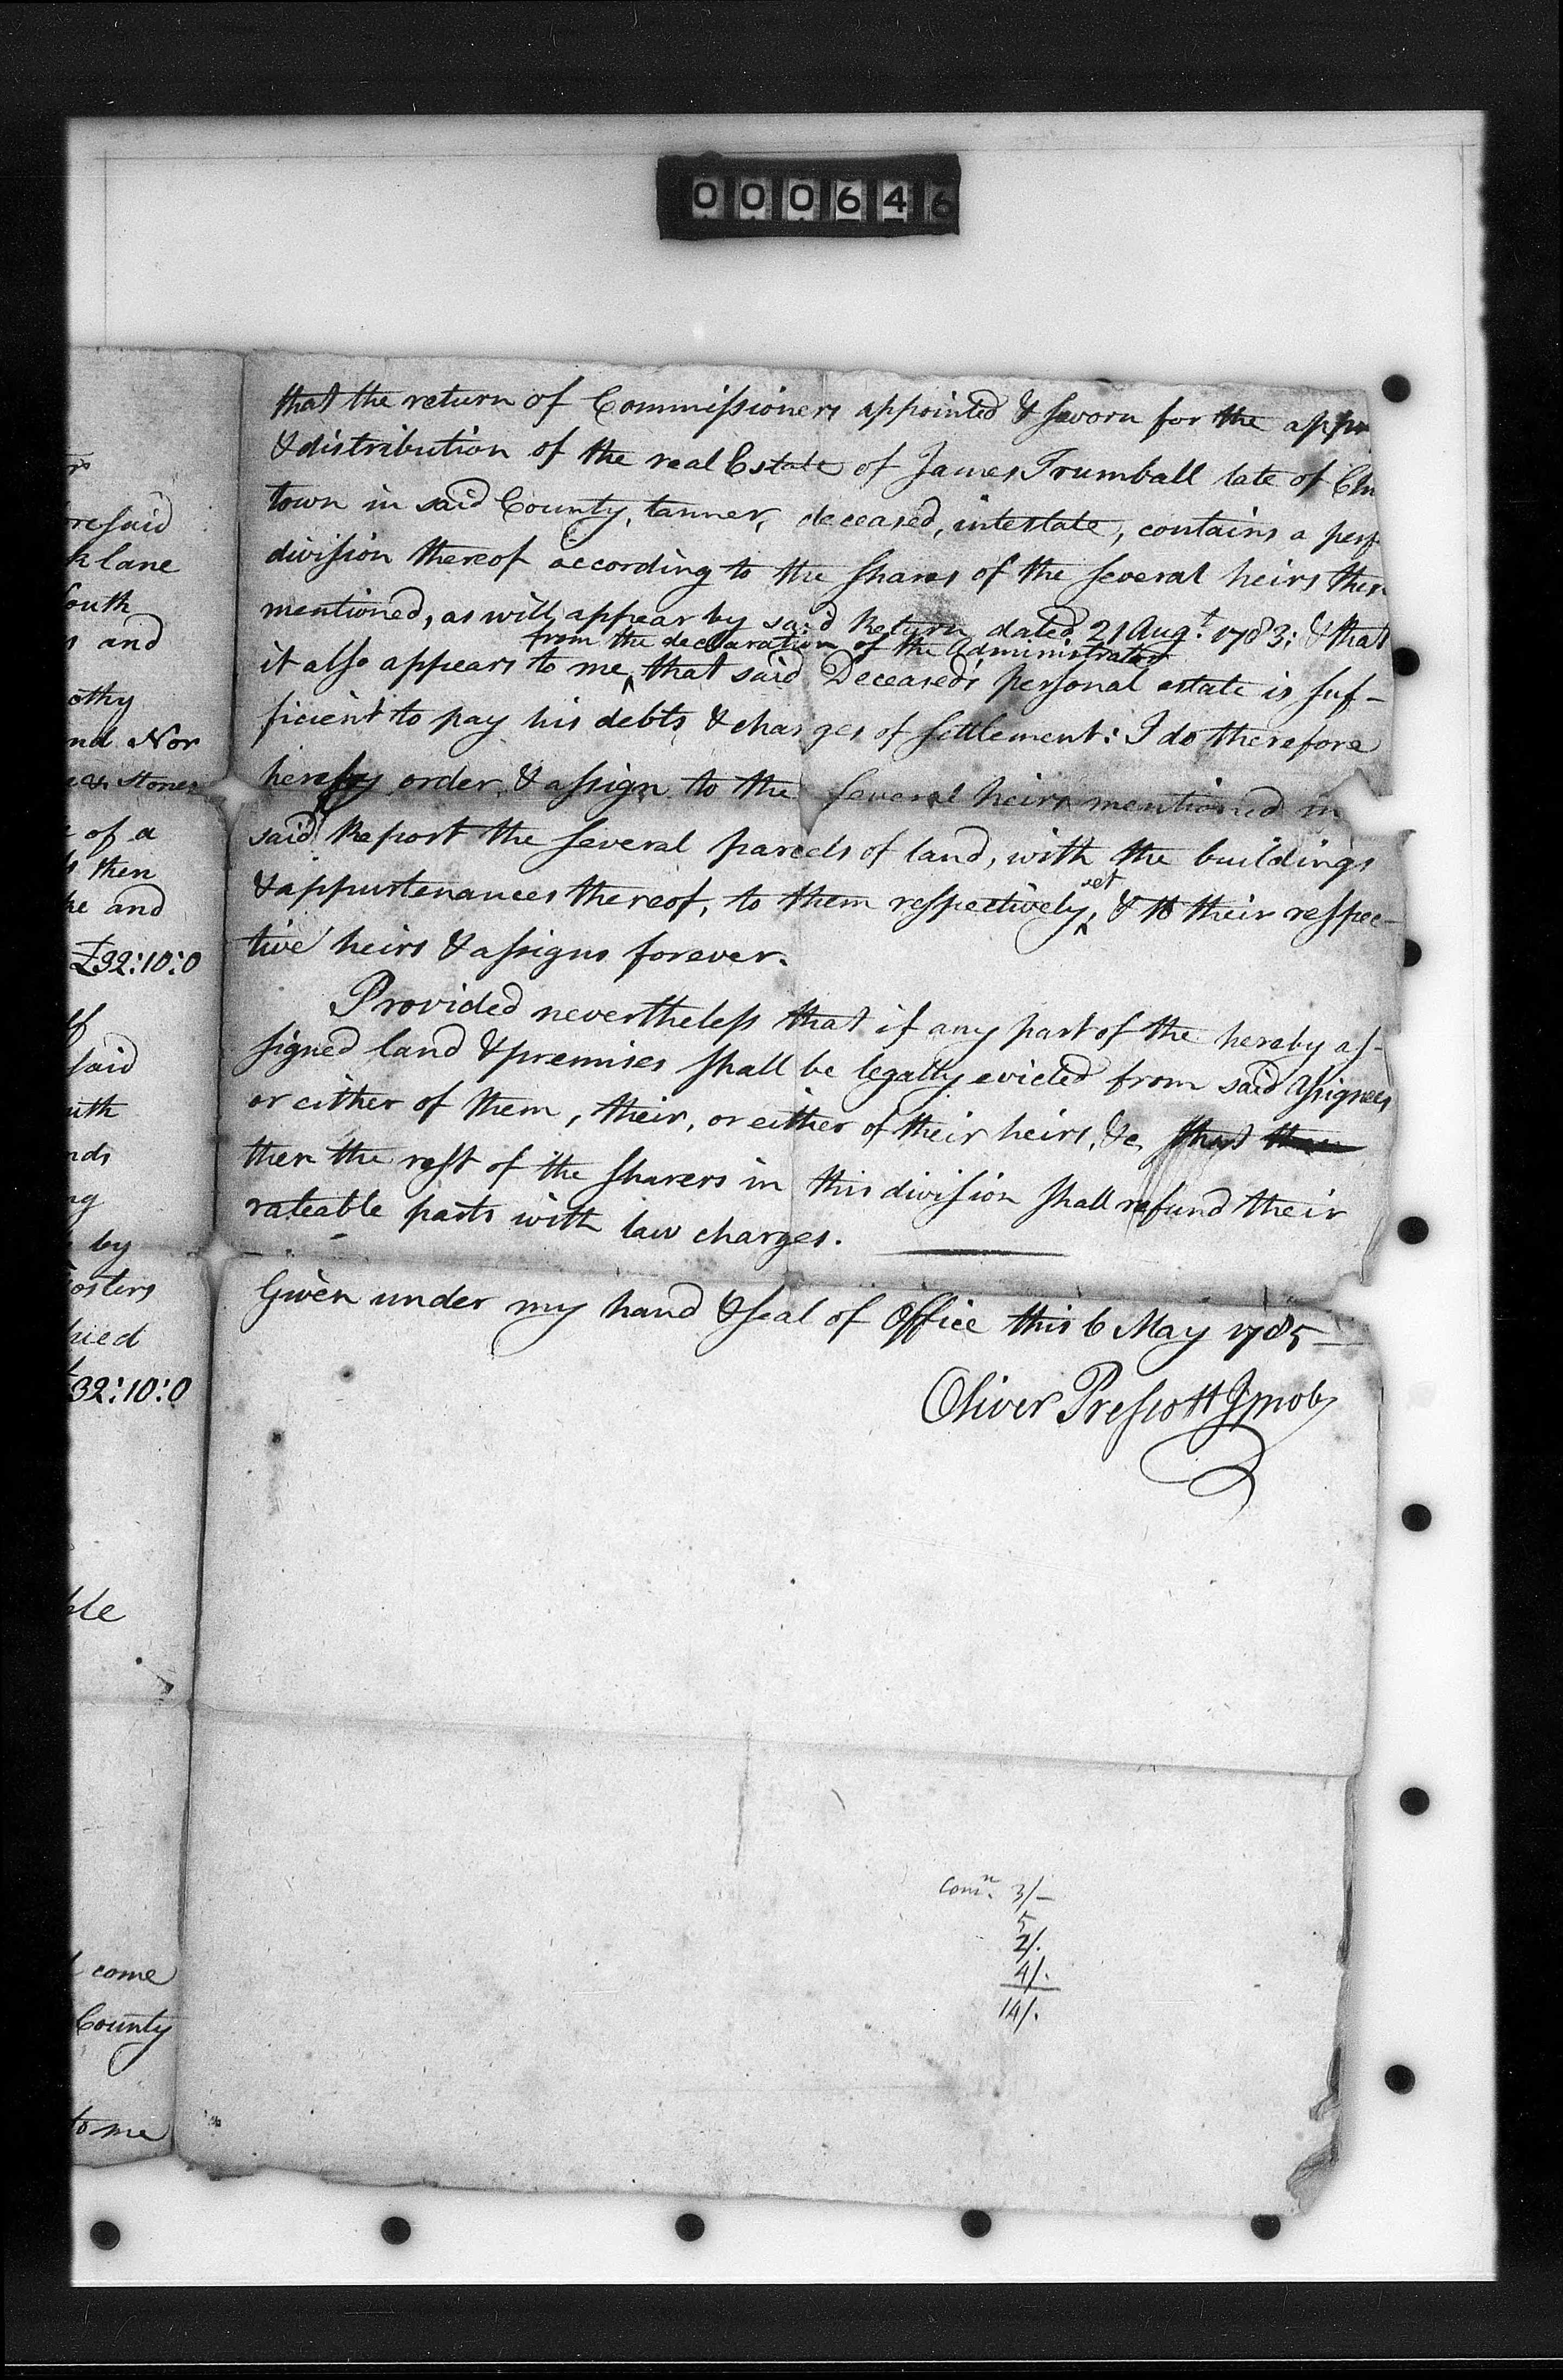 000646
resaid
k lane
South
s and
othy
nd Nor
& Stones
of a
then
he and
£32:10:0
said
uth
nds
ng
by
osters
hied
32:10:0
ble
come
County
to me
that the return of Commissioners appointed & sworn for the appr
& distribution of the real Estate of James Trumball late of Cha
town in said County, tanner, deceased, intestate, contains a perf
division thereof according to the shares of the several heirs ther
mentioned, as will appear by said Return dated 21 Augt. 1783: & that
from the declaration of the Administrator
it also appears to me ^ that said Deceased's personal estate is suf-
ficient to pay his debts & charges of settlement: I do therefore
hereby order & assign to the several heirs mentioned in
said Report the several parcels of land, with the buildings
& appurtenances thereof, to them respectively ^ set & to their respec-
tive heirs & assigns forever.
Provided nevertheless that if any part of the hereby as-
signed land & premises shall be legally evicted from said Assignees
or either of them, their, or either of their heirs, &c
then the rest of the sharers in this division shall refund their
rateable parts with law charges.
Given under my hand & seal of Office this 6 May 1785
Oliver Prescott J prob
Comn. 3/-
5
2/.
4/.
14/.